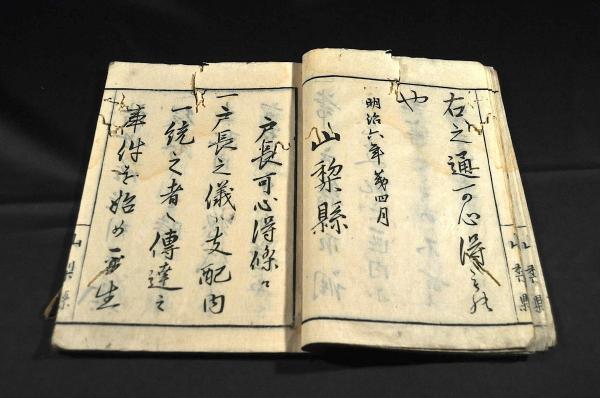 右之通可心得之
也
明治六年第四月
山黎縣
戸長可心得條々
一戸長之儀ハ支配内
一統之者ヘ傳達之
事件を始め
生
山梨県
山梨県